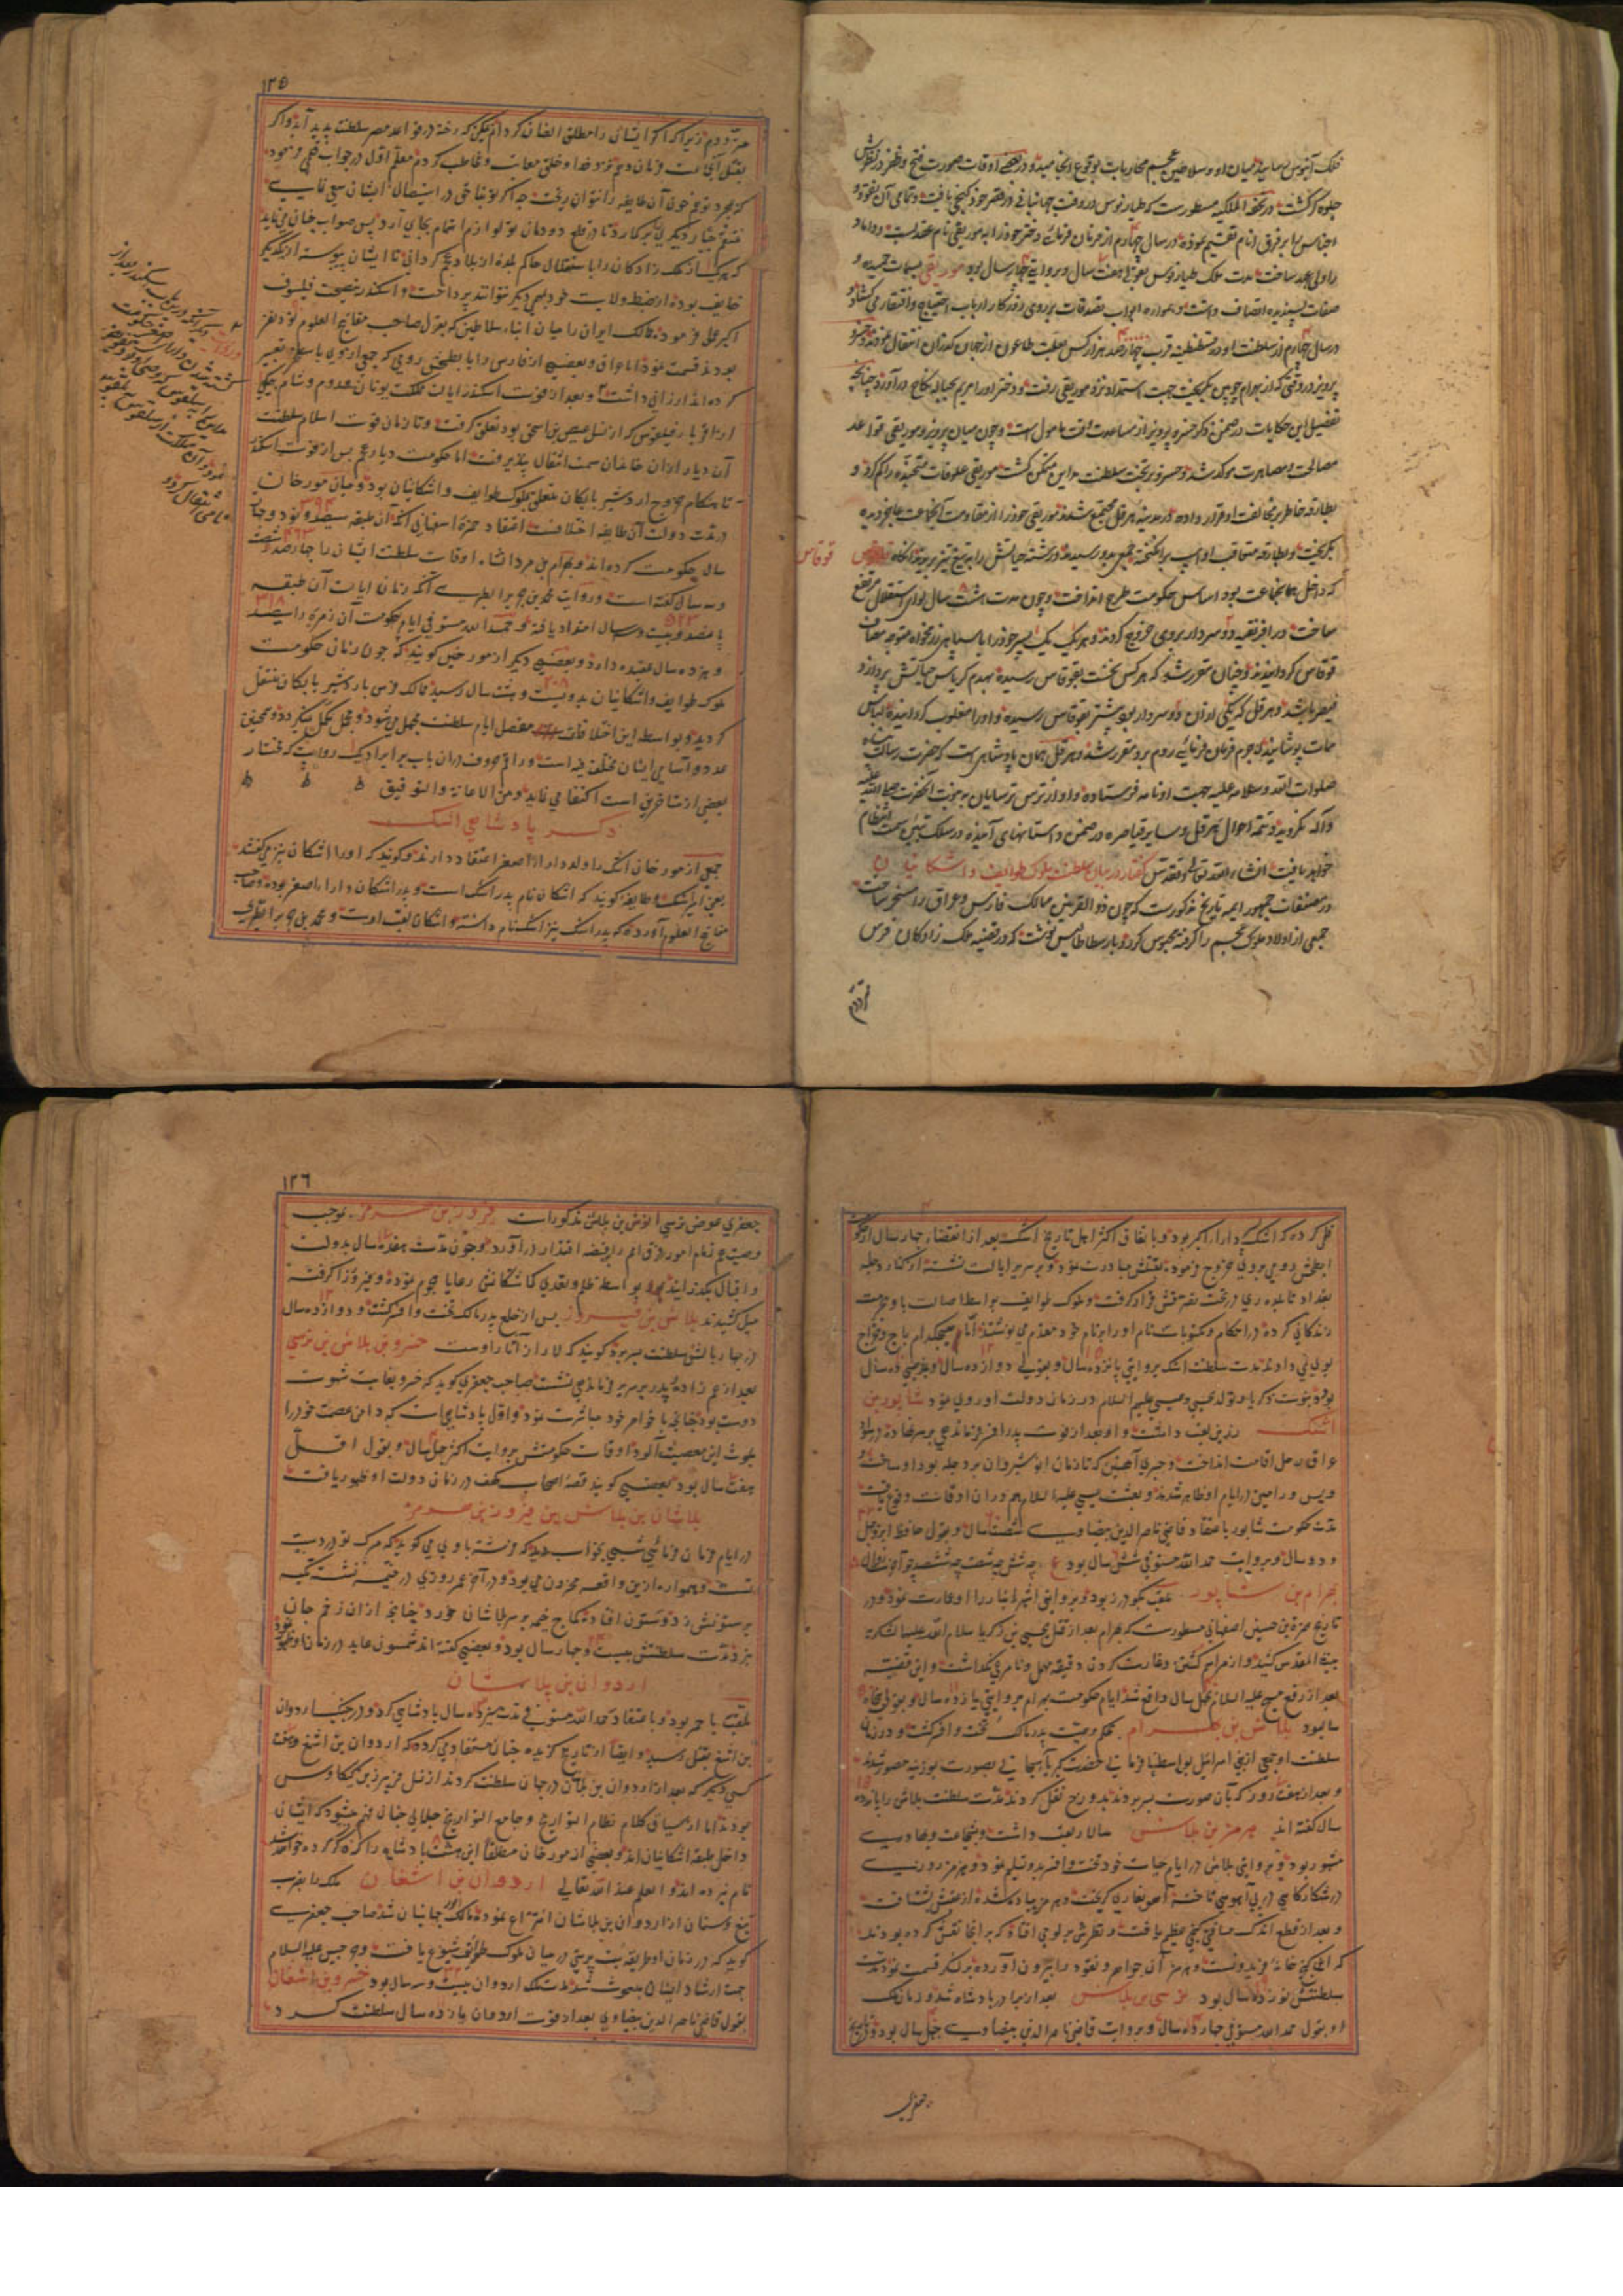 فلک آبنوس بیاسید و میان او و سلاطین عجم محاربات بوقوع انجامید و در بعضی اوقات صورت فتح و ظفر در نظرش
جلوه گر گشت و در تحفه الملکیه مسطور ست که طیاریوس در وقت جهانبانی در قصر خود گنجی یافت و تمامی آن نقود و
اجناس را بر فرق انام تقسیم نموده در سال چهارم از زمان فرمان دختر خود را به موریقی نام عقد بست و داماد
را ولی عهد ساخت مدت ملک طیاریوس بقولی هفت سال و بروایتی چهار سال بود موریقی بسمات حمیده و
صفات پسندیده اتصاف داشت و همواره ابواب تصدقات بر روی روزگار ارباب احتیاج و افتقار می گشاد و
در سال چهارم از سلطنت او در قسطنطنیه قرب چهارصد هزار کس بعلت طاعون از جهان گذران انتقال نمودند و خسرو
پرویز در وقتی که از بهرام چوبین بگریخت جهت استمداد نزد موریقی رفت و دختر او را مریم بحباله نکاح در آورد چنانچه
تفضیل این حکایات در ضمن ذکر خسرو پرویز از مساعدت وقت مامول است و چون میان پرویز و موریقی قواعد
مصالحت و مصاهرت موکد شد و خسرو بر تخت سلطنت مداین متمکن گشت موریقی علوفات متجنده را کم کرد و
بطارقه خاطر بر مخالفت او قرار داده در مدینه هرقل مجتمع شدند موریقی خود را از مقاومت آنجماعت عاجز دیده
بگریخت و بطارقه متعاقب او اسب برانگیخته جمعی بدو رسیدند و رشته حیاتش را به تیغ تیز بریدند آنگاه قوقاس
قوقاس
که داخل همان جماعت بود اساس حکومت طرح انداخت و چون مدت هشت سال لوای استقلال مرتفع
ساخت در افریقیه دو سردار بروی خروج کردند و هر یک یک پسر خود را با سپاهی نزدیک همراه متوجه مصاف
قوقاس گردانیدند و چنان مقرر شد که هر کس نخست بقوقاس رسیده بهدم کریاس حیاتش پردازد
قیصر باشد و هرقل که یکی از آن دو سردار بود پیشتر بقوقاس رسیده و او را مغلوب گردانیده لباس
ممات پوشانید لاجرم فرمان فرمائی روم برو مقرر شد و هرقل همان پادشاهی است که حضرت رسالت پناه
صلوات الله و سلامه علیه جهت او نامه فرستاده و او از ترس ترسایان به نبوت آنحضرت صلی الله علیه
و آله نگروید و تتمه احوال هرقل و سایر قیاصره در ضمن داستانهای آینده در سلک تبیین سمت انتظام
خواهد یافت انشاء الله تعالی و تقدس گفتار در بیان سلطنت ملوک طوایف و اشکانیان
در مصنفات جمهور ایمه تاریخ مذکورست که چون ذو القرنین ممالک فارس و عراق را مسخر ساخت
جمعی از اولاد ملوک عجم را گرفته محبوس کرد و بارسطاطالیس نوشت که در قضیه ملک زادگان فرس
متردد
۱۲۵
متردد م زیرا که اگر ایشان را مطلق العنان گردانم ممکن که رخنه در قواعد قصر سلطنت پدید آید و اگر
بقتل آنجماعت فرمان دهم نزد خدا و خلق معاتب و مخاطب گردم معلم اول در جواب قلمی فرموده
که بمجرد توهم خون آن طایفه را نتوان ریخت چه اگر تو بناحق در استیصال ایشان سعی نمائی
منتقم جبار دیگری را بر گمارد تا در قطع دودمان تو لوازم اهتمام بجای آرد پس صواب چنان می نماید
که هر یک از ملک زادگان را باستقلال حاکم بلده از بلاد عجم گردانی تا ایشان پیوسته از یکدیگر
خایف بوده از ضبط ولایت خود بمهمی دیگر نتوانند پرداخت و اسکندر بنصیحت فیلسوف
اکبر عمل فرموده ممالک ایران را میان ابناء سلاطین که بقول صاحب مفاتیح العلوم نود نفر
بودند قسمت نمود اما عراق و بعضی از فارس را با بطحش رومی که جمعی از
کرده اند ارزانی داشت و بعد از فوت اسکندر ایالت مملکت یونان و روم و شام
از اقربا فیلقوس که از نسل عیص بن اسحق بود تعلق گرفت و تا زمان فوت اسلام سلطنت
آن دیار از آن خاندان سمت انتقال پذیرفت اما حکومت دیار عجم پس از فوت اسکندر
تا هنگام خروج اردشیر بابکان متعلق بملوک طوایف و اشکانیان بود و میان مورخان
در مدت دولت آن طایفه اختلاف است اعتقاد حمزه اصفهانی آنکه آن طبقه سیصد و نود و چهار
سال حکومت کرده اند و بهرام بن مردانشاه اوقات سلطنت ایشان را چهارصد و شصت
و سه سال گفته است و روایت محمد بن جریر الطبری آنکه زمان ایالت آن طبقه
پانصد و بیست و سه سال امتداد یافته و حمد الله مستوفی ایام حکومت آن زمره را سیصد
و هژده سال عقیده دارد و بعضی دیگر از مورخین گویند که چون زمان حکومت
ملوک طوایف و اشکانیان بدویست و هشت سال رسید ممالک فرس باردشیر بابکان منتقل
گردید و بواسطه این اختلافات مفصل ایام سلطنت مجمل می شود
عدد و اسامی ایشان مختلف فیه است و راقم حروف در آن باب بر ایراد یک روایت که مختار
بعضی از متاخرین است اکتفا می نماید و من الله الاعانة و التوفیق
ذکر پادشاهی اشک
جمعی از مورخان اشک را ولد دارا الاصغر اعتقاد دارند و گویند که او را اشکان نیز می گفتند
یعنی ابن اشک و طایفه گویند که اشکان نام پدر اشک است و پدر اشکان دارا اصغر بوده و صاحب
مفاتیح العلوم آورده که پدر اشک نیز اشک نام داشته و اشکان لقب اوست و محمد بن جریر الطبری
نقل کرده که اشک بن دارا اکبر بود و باتفاق اکثر اهل تاریخ اشک بعد از انقضاء چهار سال از حکومت
ابطحش رومی بروی خروج فرموده بقتلش مبادرت نمود و بر سریر ایالت نشسته از کنار دجله
بغداد تا بلده ری در تحت تصرفش قرار گرفت و ملوک طوایف بواسطه اصالت با وی بحرمت
زندگانی کرده در احکام و مکتوبات نام او را بر نام خود مقدم می نوشتند اما هیچکدام باج و خراج
بوی نمی دادند مدت سلطنت اشک بروایتی پانزده سال و بقولی دوازده سال و بعضی ده سال
بود و نبوت زکریا و تولد یحیی و عیسی علیهم السلام در زمان دولت او روی نمود شاپور بن
اشک زرین لقب داشت و او بعد از فوت پدر افسر فرماندهی بر سر نهاده در سواد
عراق رحل اقامت انداخت و جسری آهنین که تا زمان انوشیروان بر دجله بود او ساخت و
ویس و رامین در ایام او ظاهر شدند و بعثت عیسی علیه السلام هم در آن اوقات وقوع یافت
مدت حکومت شاپور باعتقاد قاضی ناصرالدین بیضاوی شصت سال و بقول حافظ ابرو چهل
و دو سال و بروایت حمد الله مستوفی شش سال بود ع چه شش چه شصت چه ششصد چو
بهرام بن شاپور عقب گودرز بود و بروایتی شهر انبار را او عمارت نمود و در
تاریخ حمزه بن حسین اصفهانی مسطورست که بهرام بعد از قتل یحیی بن زکریا سلام الله علیهما لشکر به
بیت المقدس کشید و از مراسم کشتن و غارت کردن دقیقه مهمل و نامرعی نگذاشت و این قضیه
بعد از رفع مسیح علیه السلام بچهل سال واقع شد ایام حکومت بهرام بروایتی یازده سال و بقولی پنجاه
سال بود بلاش بن بهرام بحکم وصیت پدر مالک تخت و افسر گشت و در زمان
سلطنت او جمعی از بنی اسرائیل بواسطه نافرمانی حضرت کبریا سبحانی بصورت بوزینه مصور شدند
و بعد از هفت روز که بآن صورت بسر بردند بدوزخ نقل کردند مدت سلطنت بلاش را پانزده
سال گفته اند هرمز بن بلاش سالار لقب داشت و بشجاعت و بهادری
مشهور بود و بروایتی بلاش در ایام حیات خود تخت و افسر بدو تسلیم نمود و هرمز روزی
در شکارگاهی در پی آهویی تاخته آهو بغاری گریخت و هرمز پیاده شده از عقبش بشتافت
و بعد از قطع اندک مسافتی گنجی عظیم یافت و نظرش بر لوحی افتاد که بر آنجا نقش کرده بودند
که این گنج خانه فریدونست و هرمز آن جواهر و نقود را بیرون آورده بر لشکر قسمت نمود مدت
سلطنتش نوزده سال بود نرسی بن بلاش بعد از برادر پادشاه شد و زمان ملک
او بقول حمد الله مستوفی چهارده سال و بروایت قاضی ناصرالدین بیضاوی چهل سال بود و در تاریخ
جعفری
۱۲۶
جعفری عوض نرسی انوش بن بلاش مذکور است فیروز بن هرمز بموجب
وصیت عم زمام امور فرق امم را بقبضه اقتدار در آورد و چون مدت هفده سال بدولت
و اقبال بگذرانید بواسطه ظلم و تعدی گماشتگانش رعایا هجوم نموده و فیروز را گرفته
میل کشیدند بلاش بن فیروز پس از خلع پدر مالک تخت و افسر گشت و دوازده سال
در چهار بالش سلطنت بسر برد گویند که لار از آثار اوست خسرو بن بلاش بن نرسی
بعد از عم زاده پدر بر سریر فرماندهی نشست صاحب جعفری گوید که خسرو بغایت شهوت
دوست بود چنانچه با خواهر خود مباشرت نمود و اول پادشاهی است که دامن عصمت خود را
بلوث این معصیت آلود اوقات حکومتش بروایت اکثر چهل سال و بقول اقل
هفت سال بود بعضی گویند قصه اصحاب کهف در زمان دولت او ظهور یافت
بلاشان بن بلاش بن فیروز بن هرمز
در ایام فرمان فرمائی شبی بخواب دید که فرشته باوی می گوید که مرگ تو در دیب
تست و همواره ازین واقعه محزون می بود و در آخر عمر روزی در خیمه نشسته تکیه
بر ستونش زد و ستون افتاد کماج خیمه بر سر بلاشان خورد چنانچه از آن زخم جان
نبرد مدت سلطنتش بیست و چهار سال بود و بعضی گفته اند شمسون عابد در زمان او ظهور نمود
اردوان بن بلاشان
ملقب باحمر بود و باعتقاد حمد الله مستوفی مدت سیزده سال پادشاهی کرد و در جنگ اردوان
بن اشغ بقتل رسید و ایضا از تاریخ گزیده چنان مستفاد می گردد که اردوان بن اشغ و
کسی دیگر که بعد از اردوان بن بلاشان در جهان سلطنت کردند از نسل فریبرز بن کیکاوس
بودند اما از سیاق کلام نظام التواریخ و جامع التواریخ جلالی چنان فهم میشود که ایشان
داخل طبقه اشکانیان اند و بعضی از مورخان مطلقا این هشت پادشاه را که ذکر کرده خواهد شد
نام نبرده اند و العلم عند الله تعالی اردوان بن اشغان ملک را بضرب
تیغ و سنان از اردوان بن بلاشان انتزاع نموده مالک جهانیان شد صاحب جعفری
گوید که در زمان او طریقه بت پرستی در میان ملوک طوائف شیوع یافت و جرجیس علیه السلام
جهت ارشاد ایشان مبعوث شد مدت ملک اردوان بیست و سه سال بود خسرو بن اشغان
بقول قاضی ناصرالدین بیضاوی بعد از فوت اردوان پانزده سال سلطنت کرد